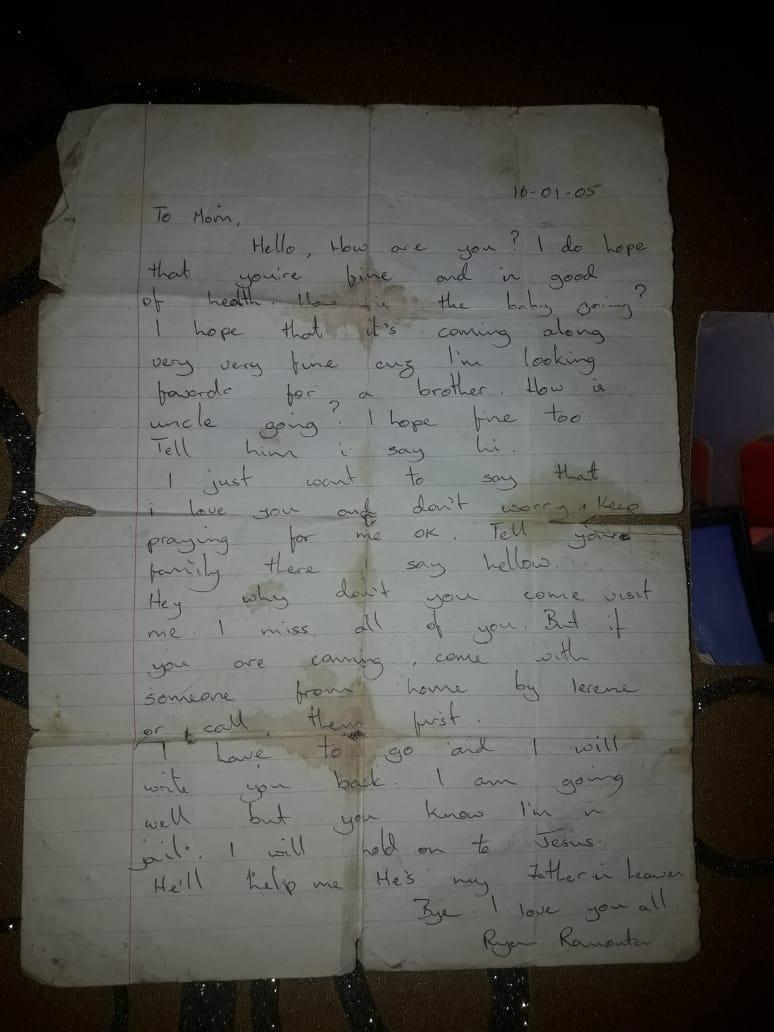 16-01-05
To Mom,
Hello, How are you? I do hope
that you're fine and in good
of health. How is the baby going?
I hope that it's coming along
very very fine cuz I'm looking
fowards for a brother. How is
uncle going? I hope fine too
Tell him i say hi.
I just want to say that
i love you and don't worry. Keep
praying for me OK. Tell youre
family there I say hellow.
Hey why don't you come visit
me. I miss all of you. But if
you are comming, come with
someone from home by lerene
or call them first.
I have to go and I will
write you back. I am going
well but you know I'm in
jail. I will hold on to Jesus.
He'll help me He's my Father in heaven
Bye. I love you all.
Ryan